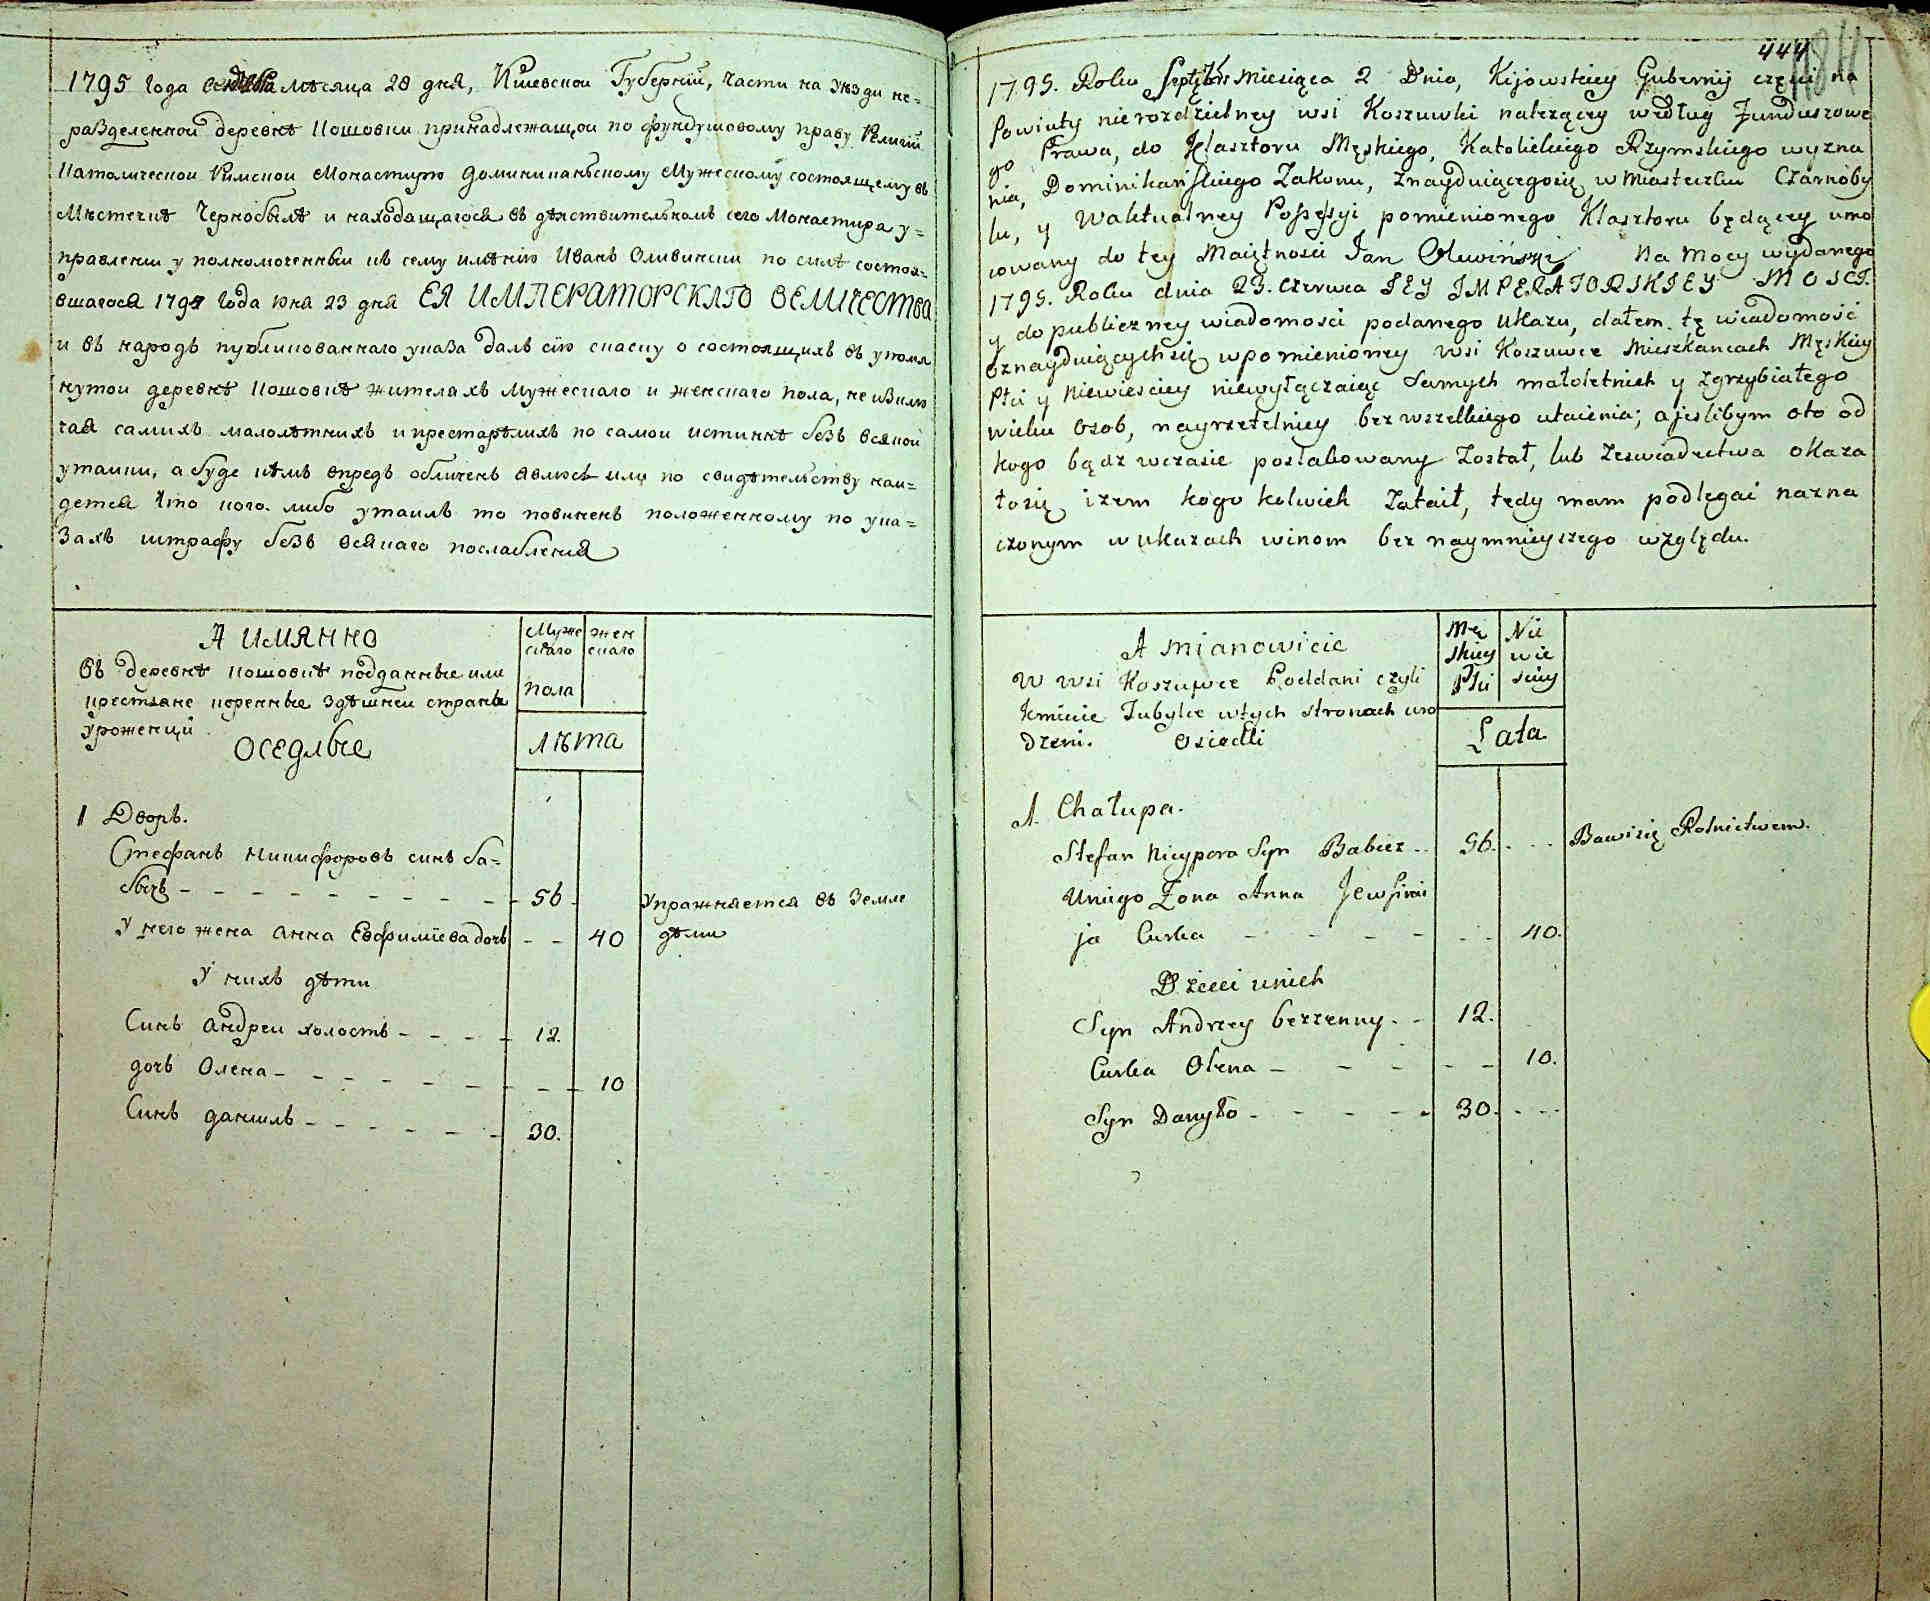 1795 Года мѣсяца 28 дня, Киевской Губернїи, части на уезди не=
разделенной деревнѣ Кошовки принадлежащои по фундушовому праву Религїи
Католической Римской монастирю Доминиканѣскому Мужескому состоящему въ
Мѣстечкѣ Чернобылѣ и находащагося въ дѣиствительномъ сего Монастира у=
правленїи уполномоченный къ сему имѣнїю Иванъ Оливинский по силѣ состоя=
вшагося 179 Года юня 23 дня ЕЯ ИМПЕРАТОРСКАГО ВЕЛИЧЕСТВА
и въ народъ публикованнаго указа далъ сїю сказку о состоящихъ въ упомя
нутой деревнѣ Кошовкѣ жителахъ Мужескаго и женскаго пола, не изклю
чая самихъ малолѣтнихъ и престарѣлихъ по самой истиннѣ безъ всякой
утайки, а буде кѣмъ впредь обличенъ явлюсь или по свидѣтельству най=
дется что кого либо утаилъ то повиненъ положенному по ука=
захъ штрафу безъ всякаго послабленїя
А ИМЯННО
въ деревнѣ кошовкѣ подданные или
крестяне коренные здѣшней страны
уроженци
ОСЕДЛЫЕ
Муже
скаго
жен
скаго
пола
лѣта
1 Дворъ.
Стефанъ Никифоровъ синъ ба=
бичъ - - - - - - - - - 56.
У него жена Анна Евфимїева дочь - - 40
Упражняется въ земле
дѣлии
У нихъ дѣти
Синъ Андреи холостъ - - - - 12.
дочь Олена - - - - - - - - - 10
Синъ данилъ - - - - - - 30.
444
1795. Roku miesiąca 2 Dnia, Kijowskiey Gubernij części na
Powiaty nierozdzielney wsi Koszuwki należący według Funduszowe
go Prawa, do Klasztoru Męskiego, Katolickiego Rzymskiego wyzna
nia, Dominikańskiego Zakonu, Znayduiącegosię w Miasteczku Czarnoby
lu, y Waktualney Possessyi pomienionego Klasztoru będący umo
cowany do tey Maiętnosci Jan Oliwiński Na Mocy wydanego
1795. Roku dnia 23. Czerwca JEY IMPERATORSKIEY MOSCI.
y do publiczney wiadomosci podanego Ukazu, dałem tę wiadomość
oznayduiącychsię wpomienioney wsi Koszuwce Mieszkancach Męskiey
Płci y Niewiesciey niewyłączaiąc Samych małoletnich y Zgrzybiałego
wieku Osob, nayrzetelniey bez wszelkiego utaienia; a jeslibym oto od
kogo bądz wczasie poszlakowany Został, lub Zeswiadectwa okaza
łosię iżem kogo kolwiek Zataił, tedy mam podlegać nazna
czonym w ukazach winom bez naymnieyszego względu.
A mianowicie
W wsi Koszuwce Poddani czyli
Kmiecie Tubylce wtych stronach uro
dzeni. Osiedli
Mę
skiey
Płci
Nie
wie
sciey
Lata
1. Chałupa.
Stefan Nicypora Syn Babicz - - 56. - - -
Bawisię Rolnictwem.
Uniego Zona Anna Jewfimi
ja Curka - - - - - - - 40.
Dzieci unich
Syn Andrzey bezzenny - - 12.
Curka Olena - - - - - - 10.
Syn Danyło - - - - - 30. - - -